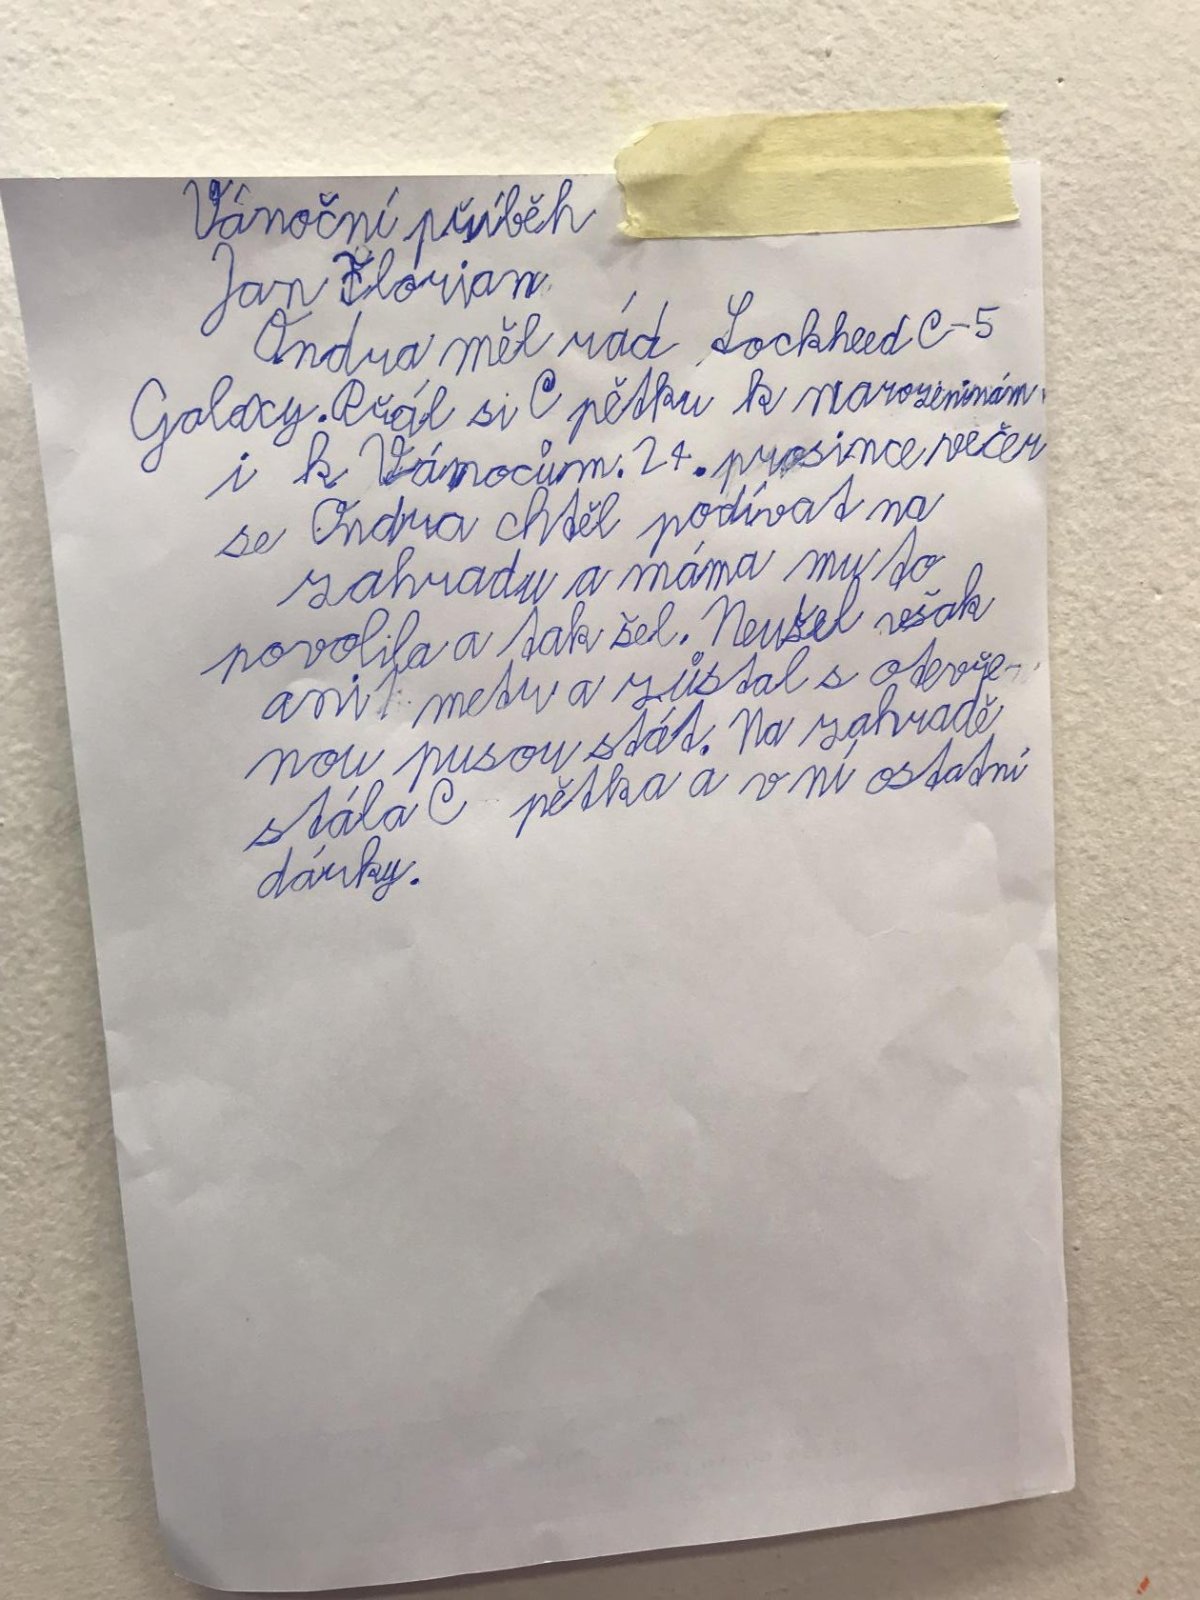 Vánoční příběh
Jan Florian
Ondra měl rád Lockheed C-5
Galaxy. Přál si C pětku k narozeninám
i k Vánocům. 24. prosince večer
se Ondra chtěl podívat na
zahradu a máma mu to
povolila a tak šel. Neušel však
ani metr a zůstal s otevře-
nou pusou stát. Na zahradě
stála C pětka a v ní ostatní
dárky.